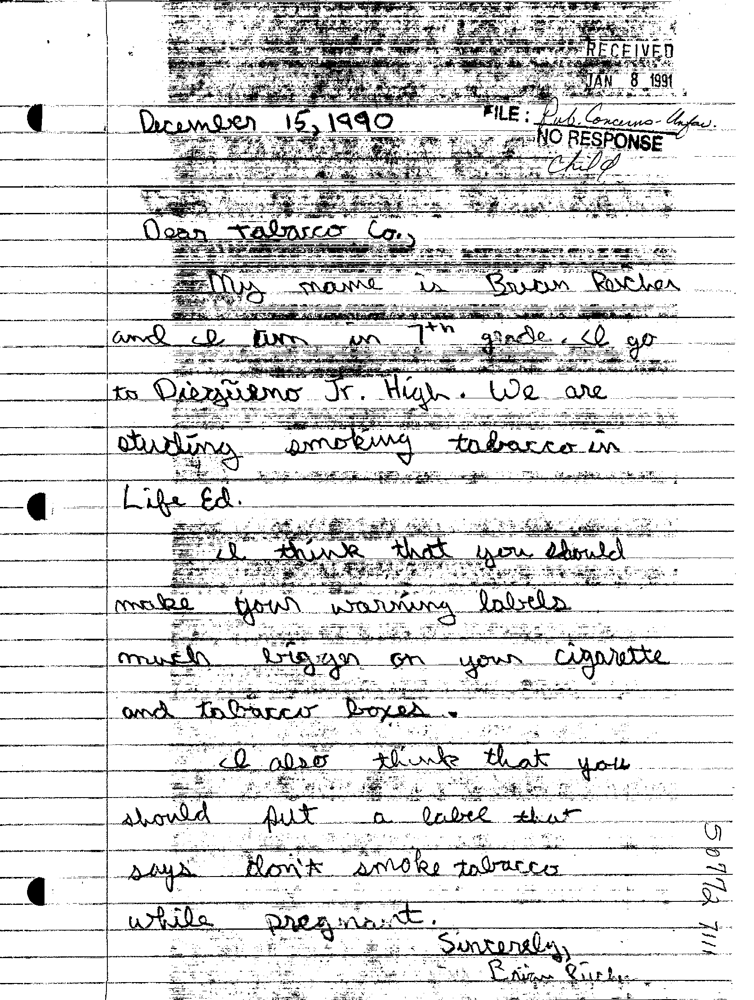 RECEIVED
JAN 8 1991
FILE: Pub. Concerns - Unfav.
NO RESPONSE
Child
December 15, 1990
Dear Tabarco Co.,
My name is Brian
and I am in 7th grade. I go
to Diergüeno Jr. High. We are
studing smoking tabacco in
Life Ed.
I think that you should
make your warning labels
much bigger on your cigarette
and tobacco boxes.
I also think that you
should put a label that
says don't smoke tobacco
while pregnant.
Sincerely,
Brian
50772 7111